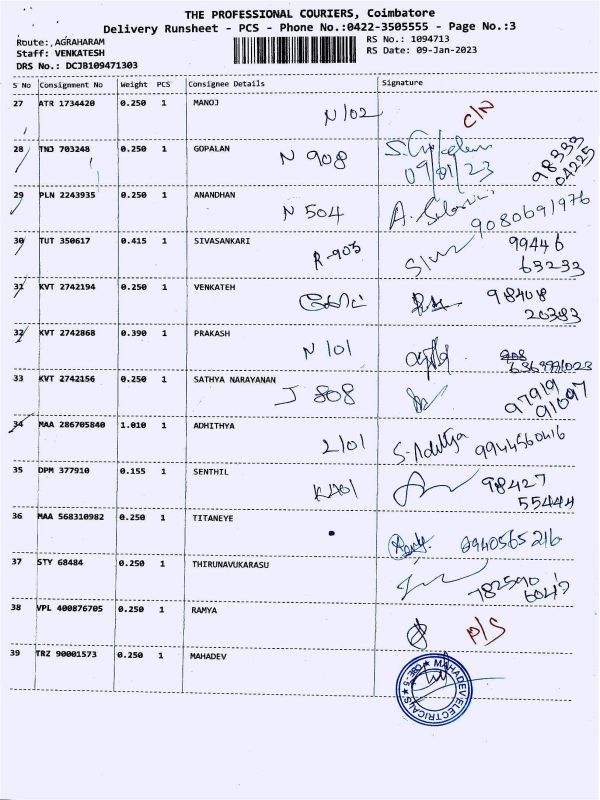 THE PROFESSIONAL COURIERS, Coimbatore
Delivery Runsheet - PCS - Phone No.:0422-3505555 - Page No.:3
Route: AGRAHARAM
RS No.: 1094713
Staff: VENKATESH
RS Date: 09-Jan-2023
DRS No.: DCJB109471303
S No Consignment No Weight PCS Consignee Details Signature
27 ATR 1734420 0.250 1 MANOJ
N102 C/N
28 TNJ 703248 0.250 1 GOPALAN
N 908 09/01/23 98333 04225
29 PLN 2243935 0.250 1 ANANDHAN
N 504 9080691976
30 TUT 350617 0.415 1 SIVASANKARI
R-903 99446
63233
31 KVT 2742194 0.250 1 VENKATEH
98408
20383
32 KVT 2742868 0.390 1 PRAKASH
N 101
33 KVT 2742156 0.250 1 SATHYA NARAYANAN
J 808 97919
91097
34 MAA 286705840 1.010 1 ADHITHYA
L101 S. Aditya 9944560416
35 DPM 377910 0.155 1 SENTHIL
98427
55444
36 MAA 568310982 0.250 1 TITANEYE
8940565216
37 STY 68484 0.250 1 THIRUNAVUKARASU
782590
38 VPL 400876705 0.250 1 RAMYA
P/S
39 TRZ 90001573 0.250 1 MAHADEV
MAHADEV ELECTRICALS CBE-5